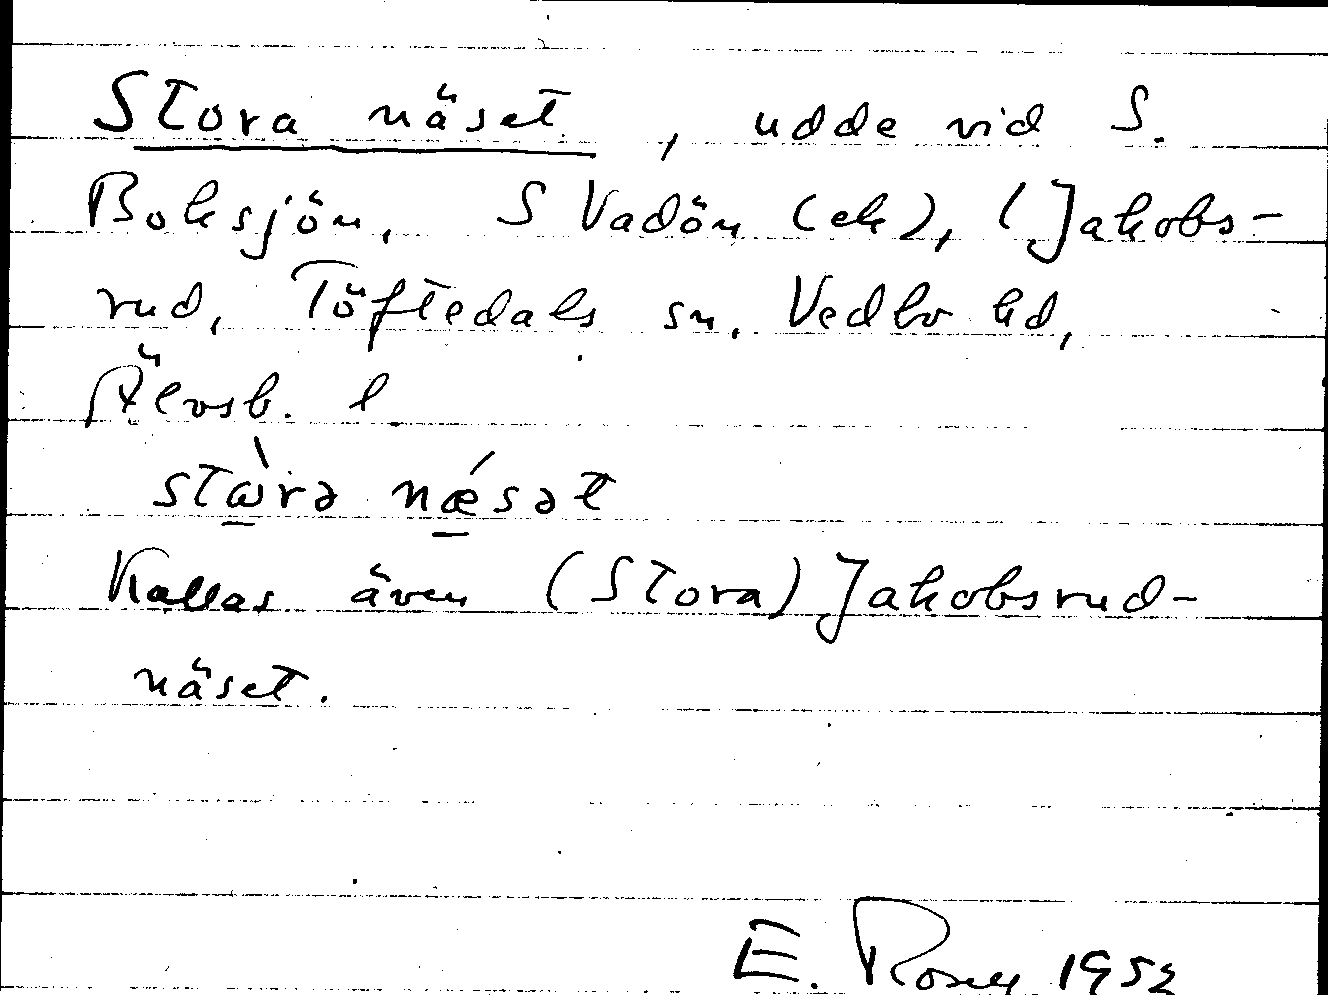 Stora näset, udde vid S.
Boksjön, S Vadön (ek), (Jakobs-
rud, Töftedals sn. Vedbo hd,
Älvsb. l
stὼrə nǽsət
Kallas även (Stora) Jakobsrud-
näset.
E. 1952